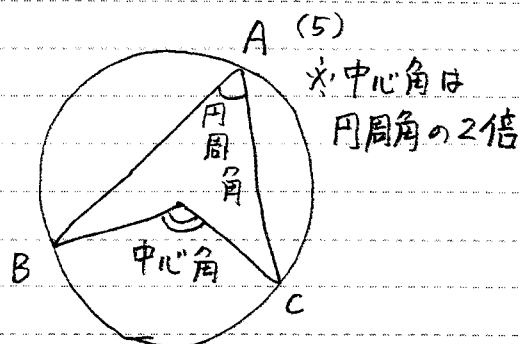 A (5)
※中心角は
円周角の2倍
円周角
中心角
B
C